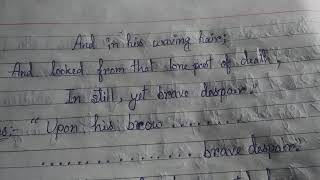 And in his waving hair;
And looked from that lone post of death,
In still, yet brave despair."
s:- "Upon his brow ..........
.................. brave despair."